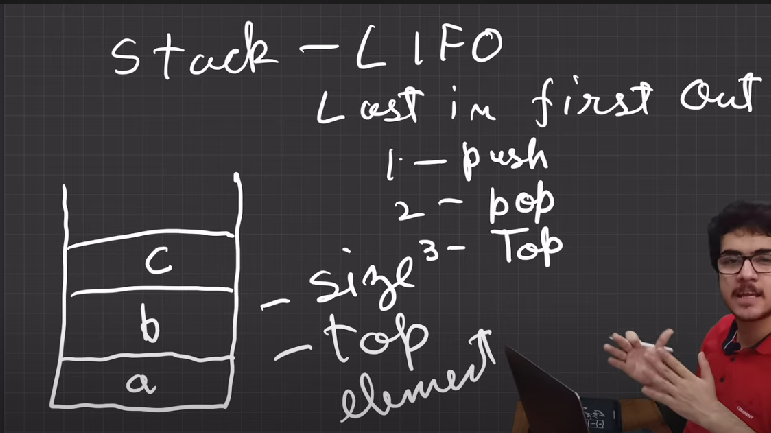 Stack - LIFO
Last in first Out
1 - push
2 - pop
3 - Top
c
b
a
- size
- top
element